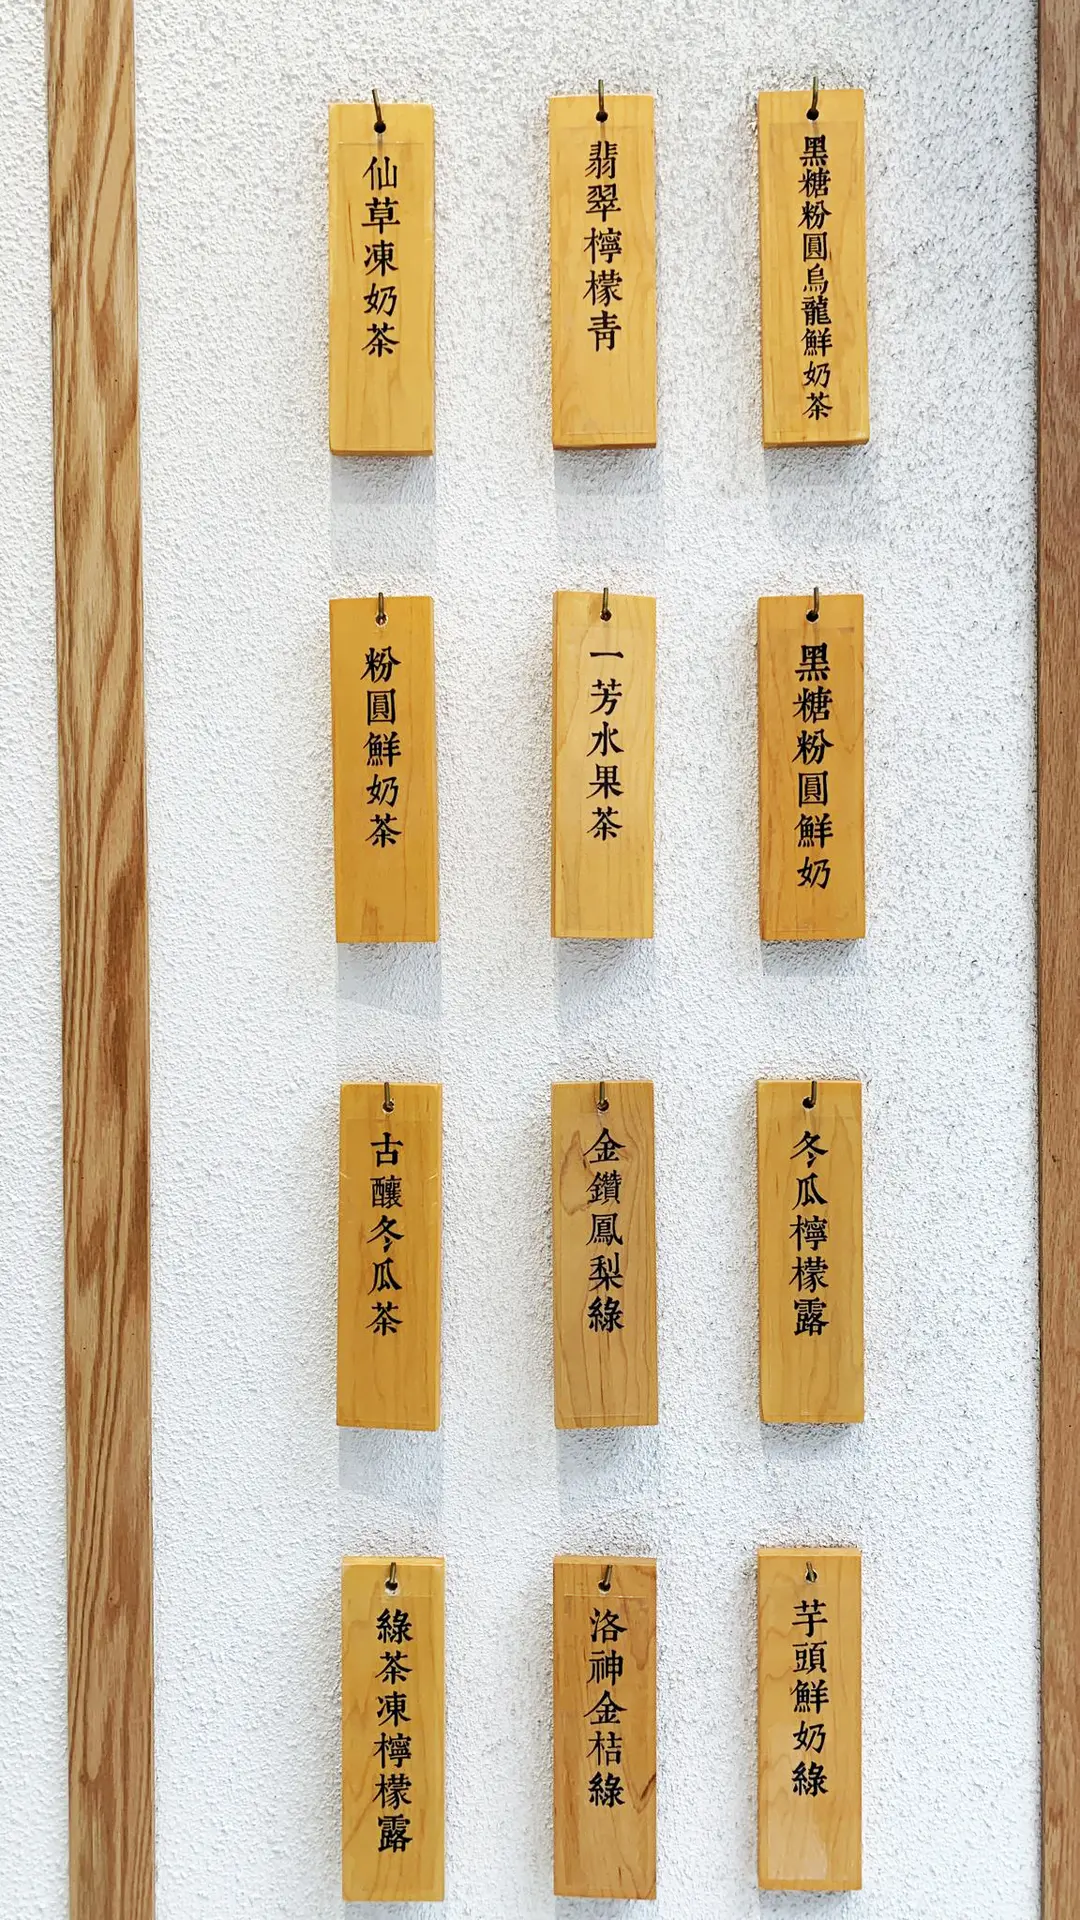 黑糖粉圓烏龍鮮奶茶
翡翠檸檬青
仙草凍奶茶
黑糖粉圓鮮奶
一芳水果茶
粉圓鮮奶茶
冬瓜檸檬露
金鑽鳳梨綠
古釀冬瓜茶
芋頭鮮奶綠
洛神金桔綠
綠茶凍檸檬露